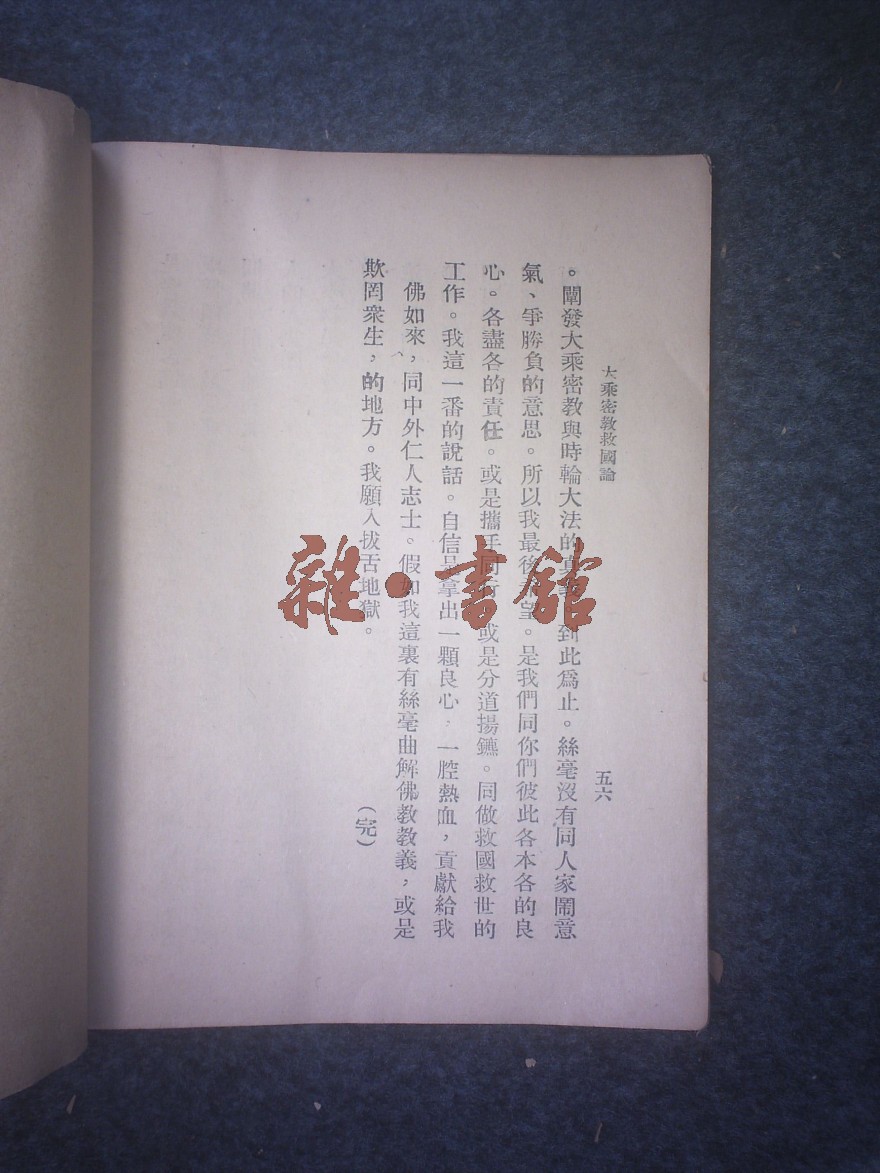 大乘密教救國論
五六
。闡發大乘密教與時輪大法的真 到此爲止。絲毫沒有同人家鬧意
氣、爭勝負的意思。所以我最後 望。是我們同你們彼此各本各的良
心。各盡各的責任。或是攜手同行 或是分道揚鑣。同做救國救世的
工作。我這一番的說話。自信是拿出一顆良心，一腔熱血，貢獻給我
佛如來，同中外仁人志士。假如我這裏有絲毫曲解佛教教義，或是
欺罔衆生，的地方。我願入拔舌地獄。
（完）
雜·書館